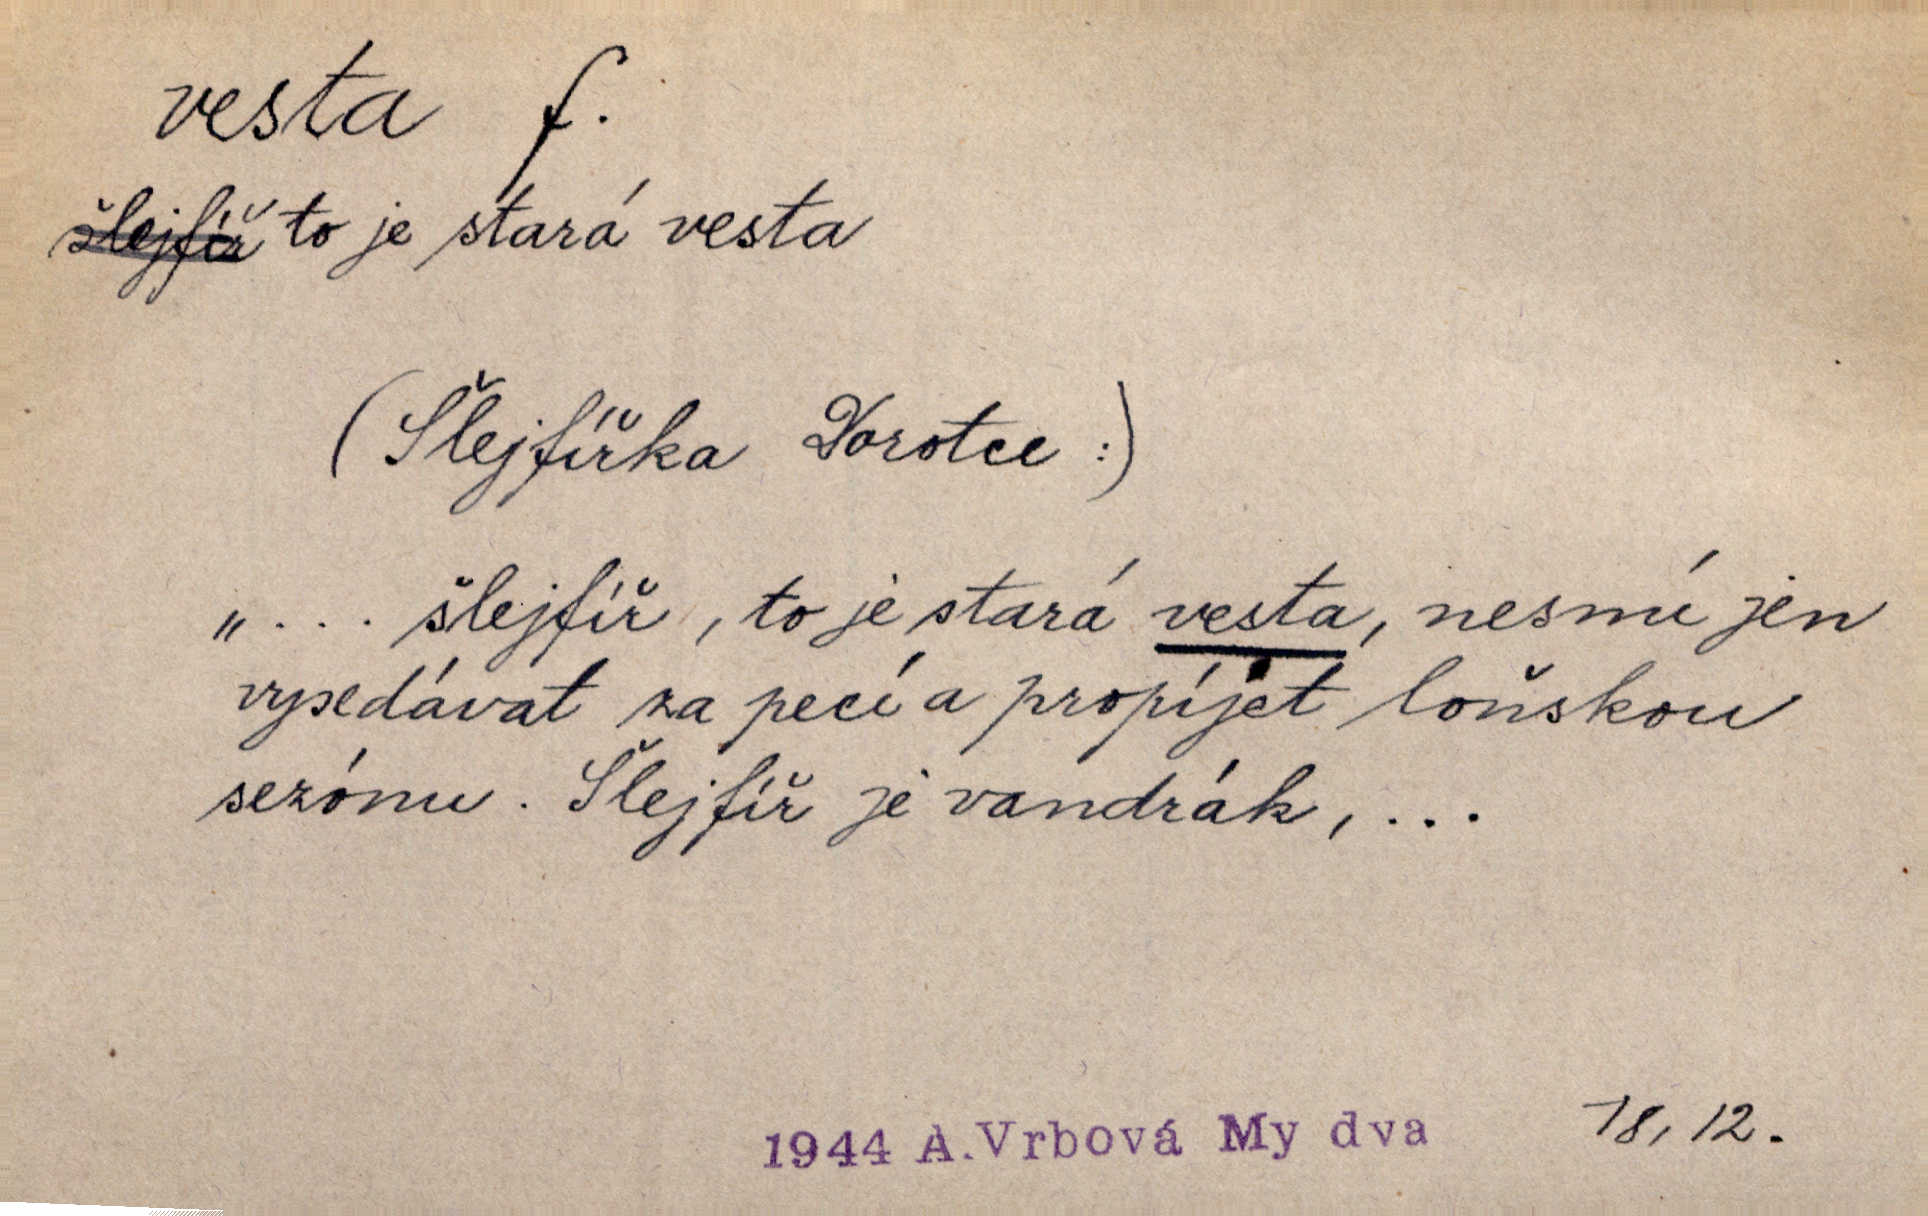 vesta f.
šlejfíř to je stará vesta
(Šlejfířka Dorotce :)
„... šlejfíř, to je stará vesta, nesmí jen
vysedávat za pecí a propíjet loňskou
sezónu. Šlejfíř je vandrák, ...
1944 A.Vrbová My dva 18, 12.